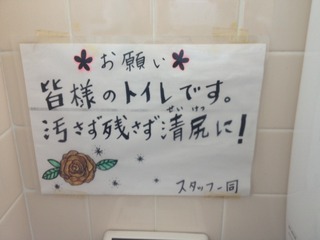 お願い
皆様のトイレです。
汚さず残さず清尻に!
せいけつ
スタッフ一同